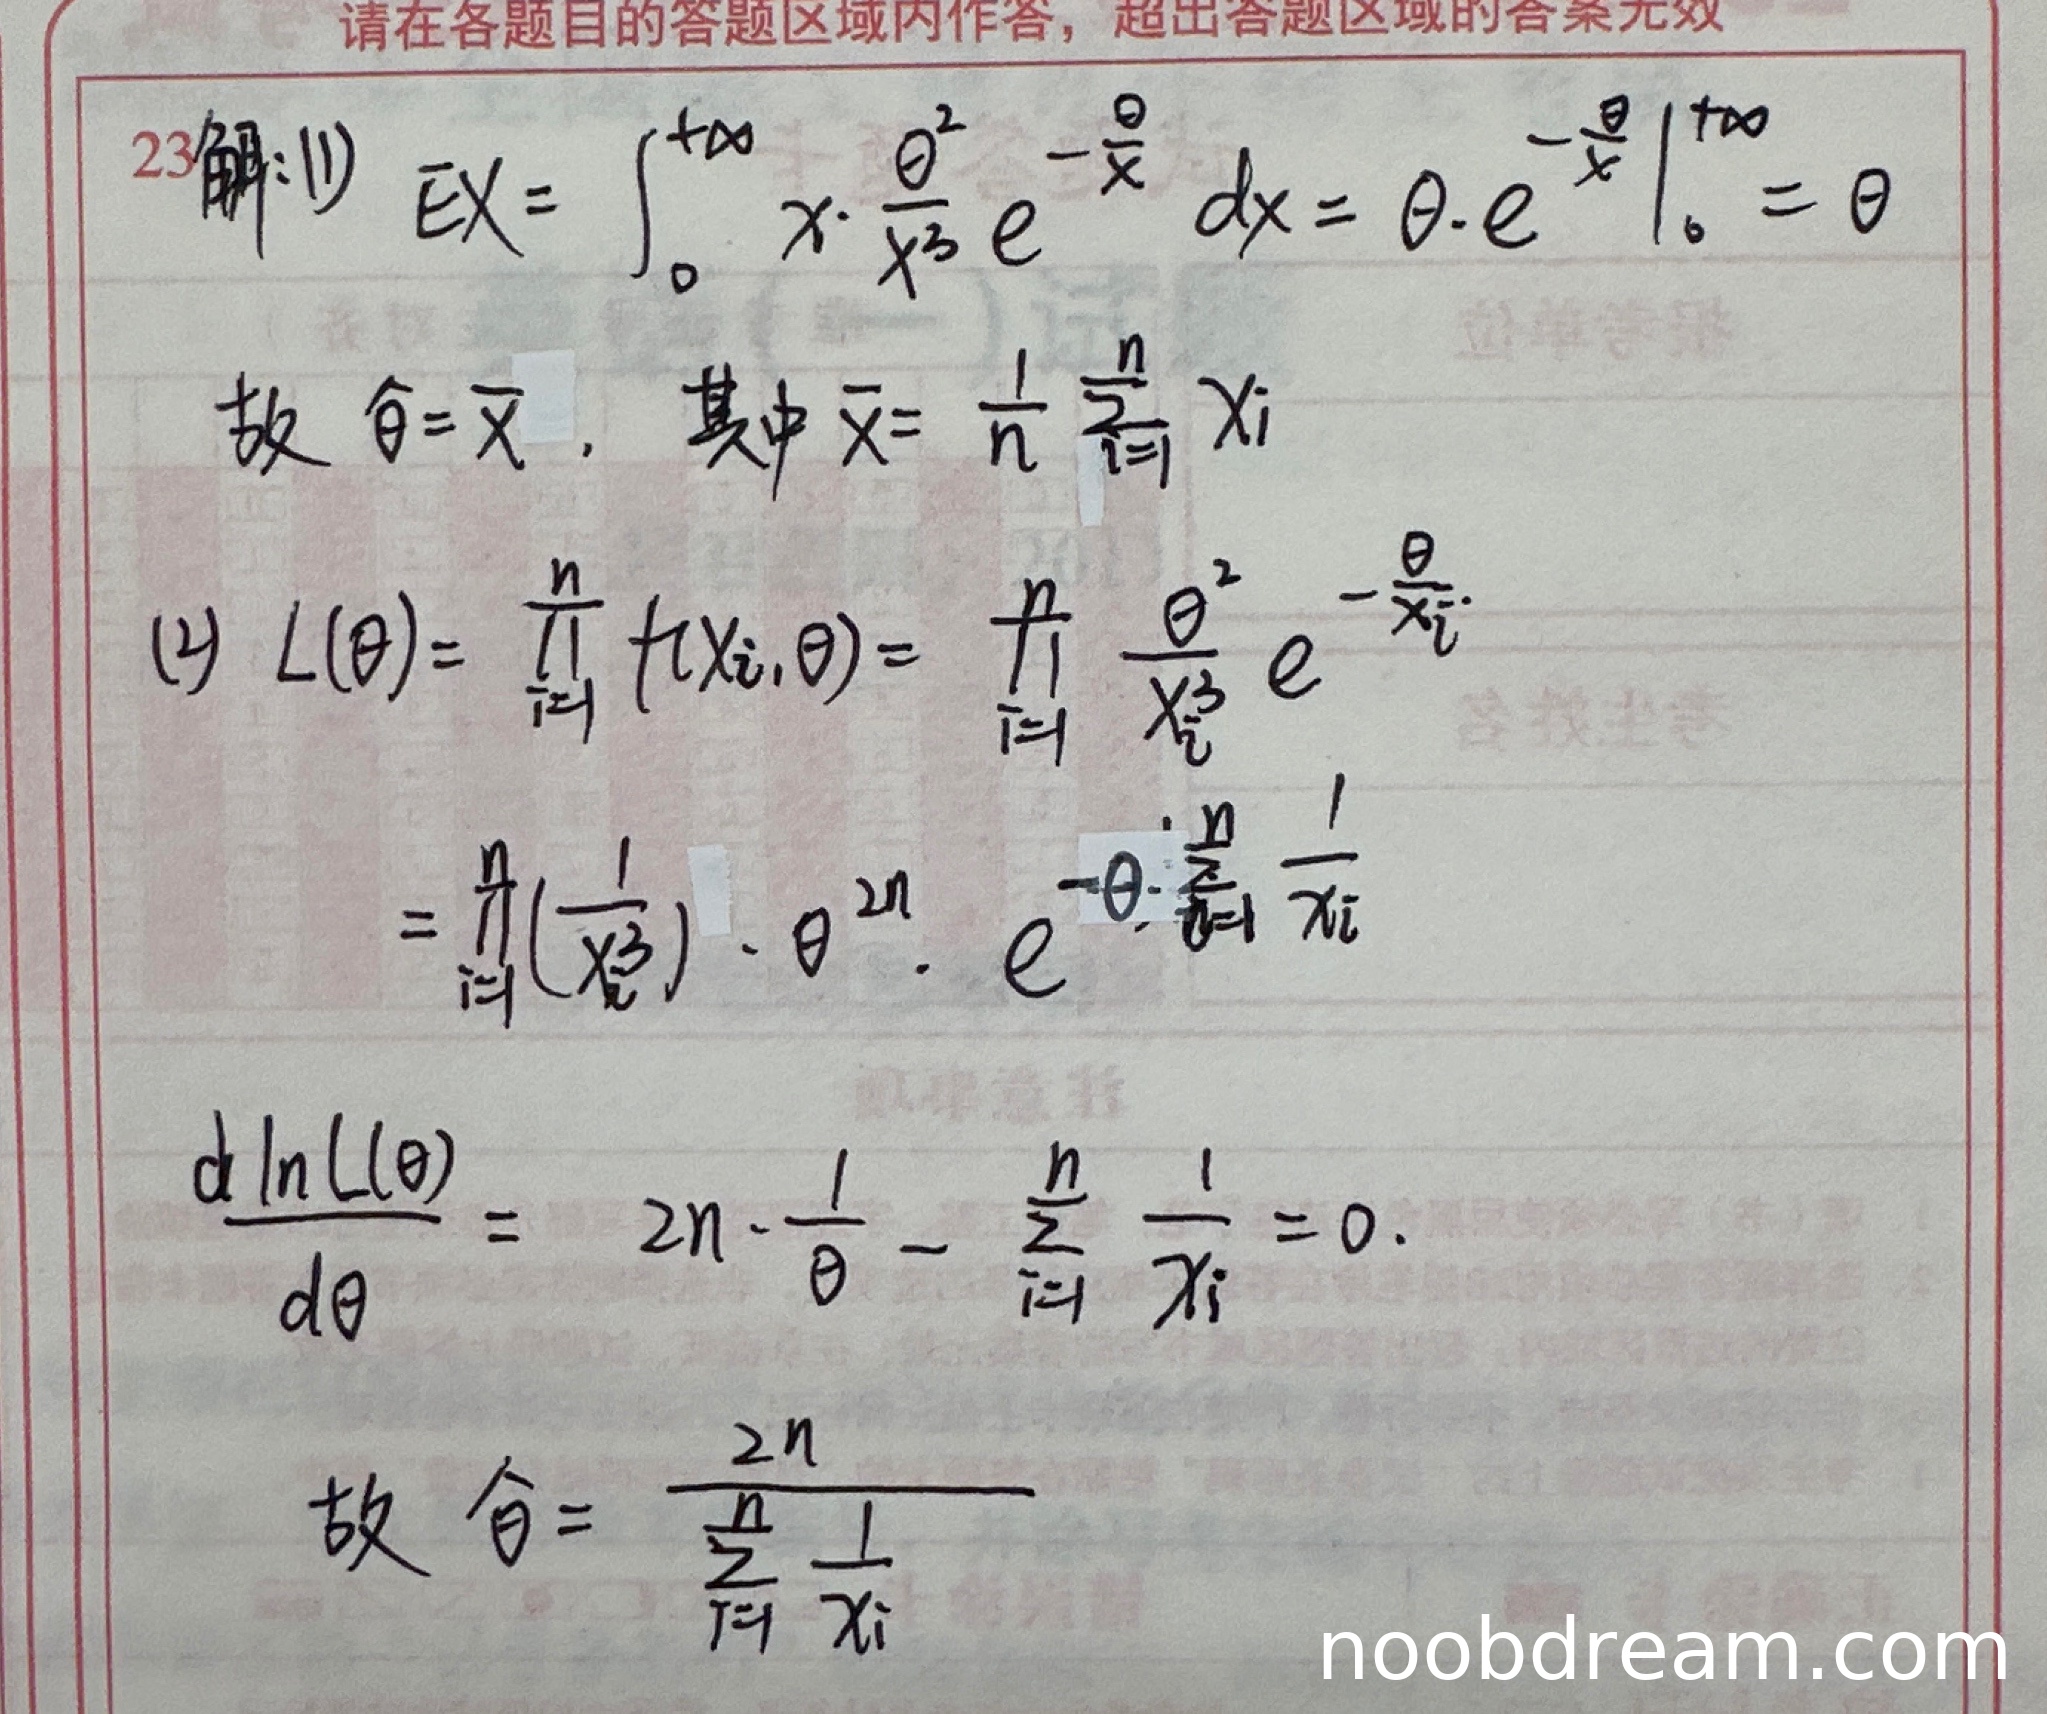 请在各题目的答题区域内作答，超出答题区域的答案无效
23解:(1) EX = ∫₀^{+∞} x·\frac{θ²}{x³} e^{-\frac{θ}{x}} dx = θ·e^{-\frac{θ}{x}} |₀^{+∞} = θ
故 θ̂ = x̄, 其中 x̄ = \frac{1}{n} \sum_{i=1}^{n} x_i
(2) L(θ) = \prod_{i=1}^{n} f(x_i, θ) = \prod_{i=1}^{n} \frac{θ²}{x_i³} e^{-\frac{θ}{x_i}}
= \prod_{i=1}^{n} (\frac{1}{x_i³}) · θ^{2n} · e^{-θ·\sum_{i=1}^{n} \frac{1}{x_i}}
\frac{d ln L(θ)}{dθ} = 2n · \frac{1}{θ} - \sum_{i=1}^{n} \frac{1}{x_i} = 0.
故 θ̂ = \frac{2n}{\sum_{i=1}^{n} \frac{1}{x_i}}
noobdream.com